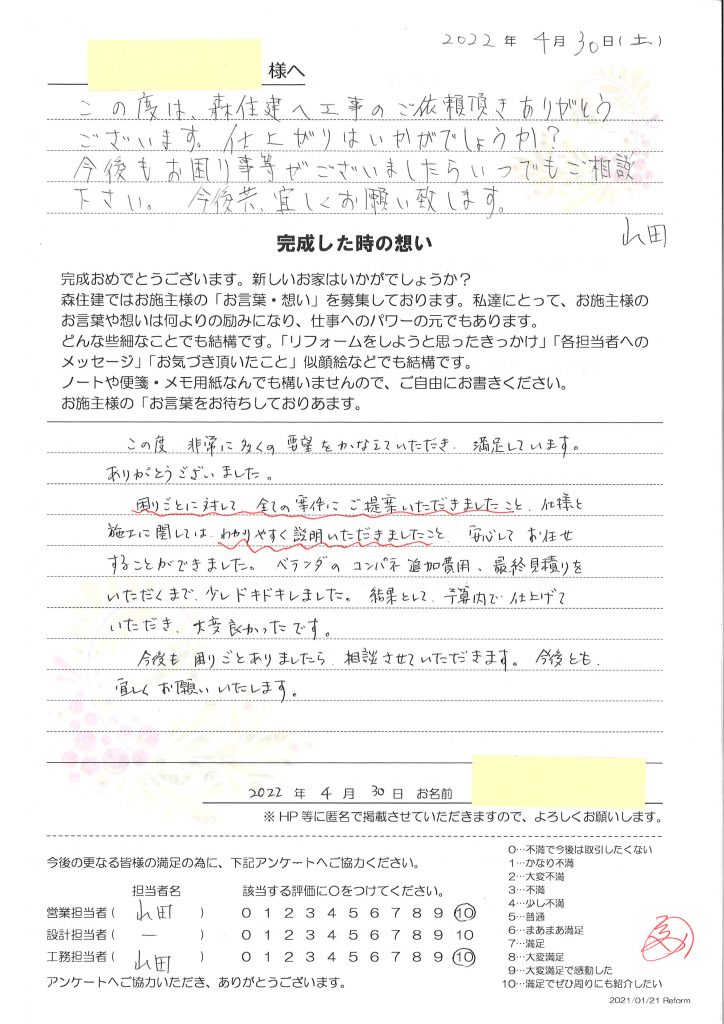 2022年 4月 30日(土)
様へ
この度は、森住建へ工事のご依頼頂きありがとう
ございます。仕上がりはいかがでしょうか?
今後もお困り事等がございましたらいつでもご相談
下さい。 今後共、宜しくお願い致します。
山田
完成した時の想い
完成おめでとうございます。新しいお家はいかがでしょうか?
森住建ではお施主様の「お言葉・想い」を募集しております。私達にとって、お施主様の
お言葉や想いは何よりの励みになり、仕事へのパワーの元でもあります。
どんな些細なことでも結構です。「リフォームをしようと思ったきっかけ」「各担当者への
メッセージ」「お気づき頂いたこと」似顔絵などでも結構です。
ノートや便箋・メモ用紙なんでも構いませんので、ご自由にお書きください。
お施主様の「お言葉をお待ちしておりあます。
この度 非常に多くの要望をかなえていただき、満足しています。
ありがとうございました。
困りごとに対して 全ての案件にご提案いただきましたこと、仕様と
施工に関しては、わかりやすく説明いただきましたこと、安心してお任せ
することができました。ベランダのコンパネ追加費用、最終見積りを
いただくまで、少しドキドキしました。結果として、予算内で仕上げて
いただき、大変良かったです。
今後も 困りごとありましたら、相談させていただきます。今後とも、
宜しくお願いいたします。
2022 年 4 月 30 日 お名前
※HP等に匿名で掲載させていただきますので、よろしくお願いします。
今後の更なる皆様の満足の為に、下記アンケートへご協力ください。
担当者名 該当する評価に○をつけてください。
営業担当者( 山田 ) 0 1 2 3 4 5 6 7 8 9 10
設計担当者( ー ) 0 1 2 3 4 5 6 7 8 9 10
工務担当者( 山田 ) 0 1 2 3 4 5 6 7 8 9 10
アンケートへご協力いただき、ありがとうございます。
0…不満で今後は取引したくない
1…かなり不満
2…大変不満
3…不満
4…少し不満
5…普通
6…まあまあ満足
7…満足
8…大変満足
9…大変満足で感動した
10…満足でぜひ周りにも紹介したい
2021/01/21 Reform